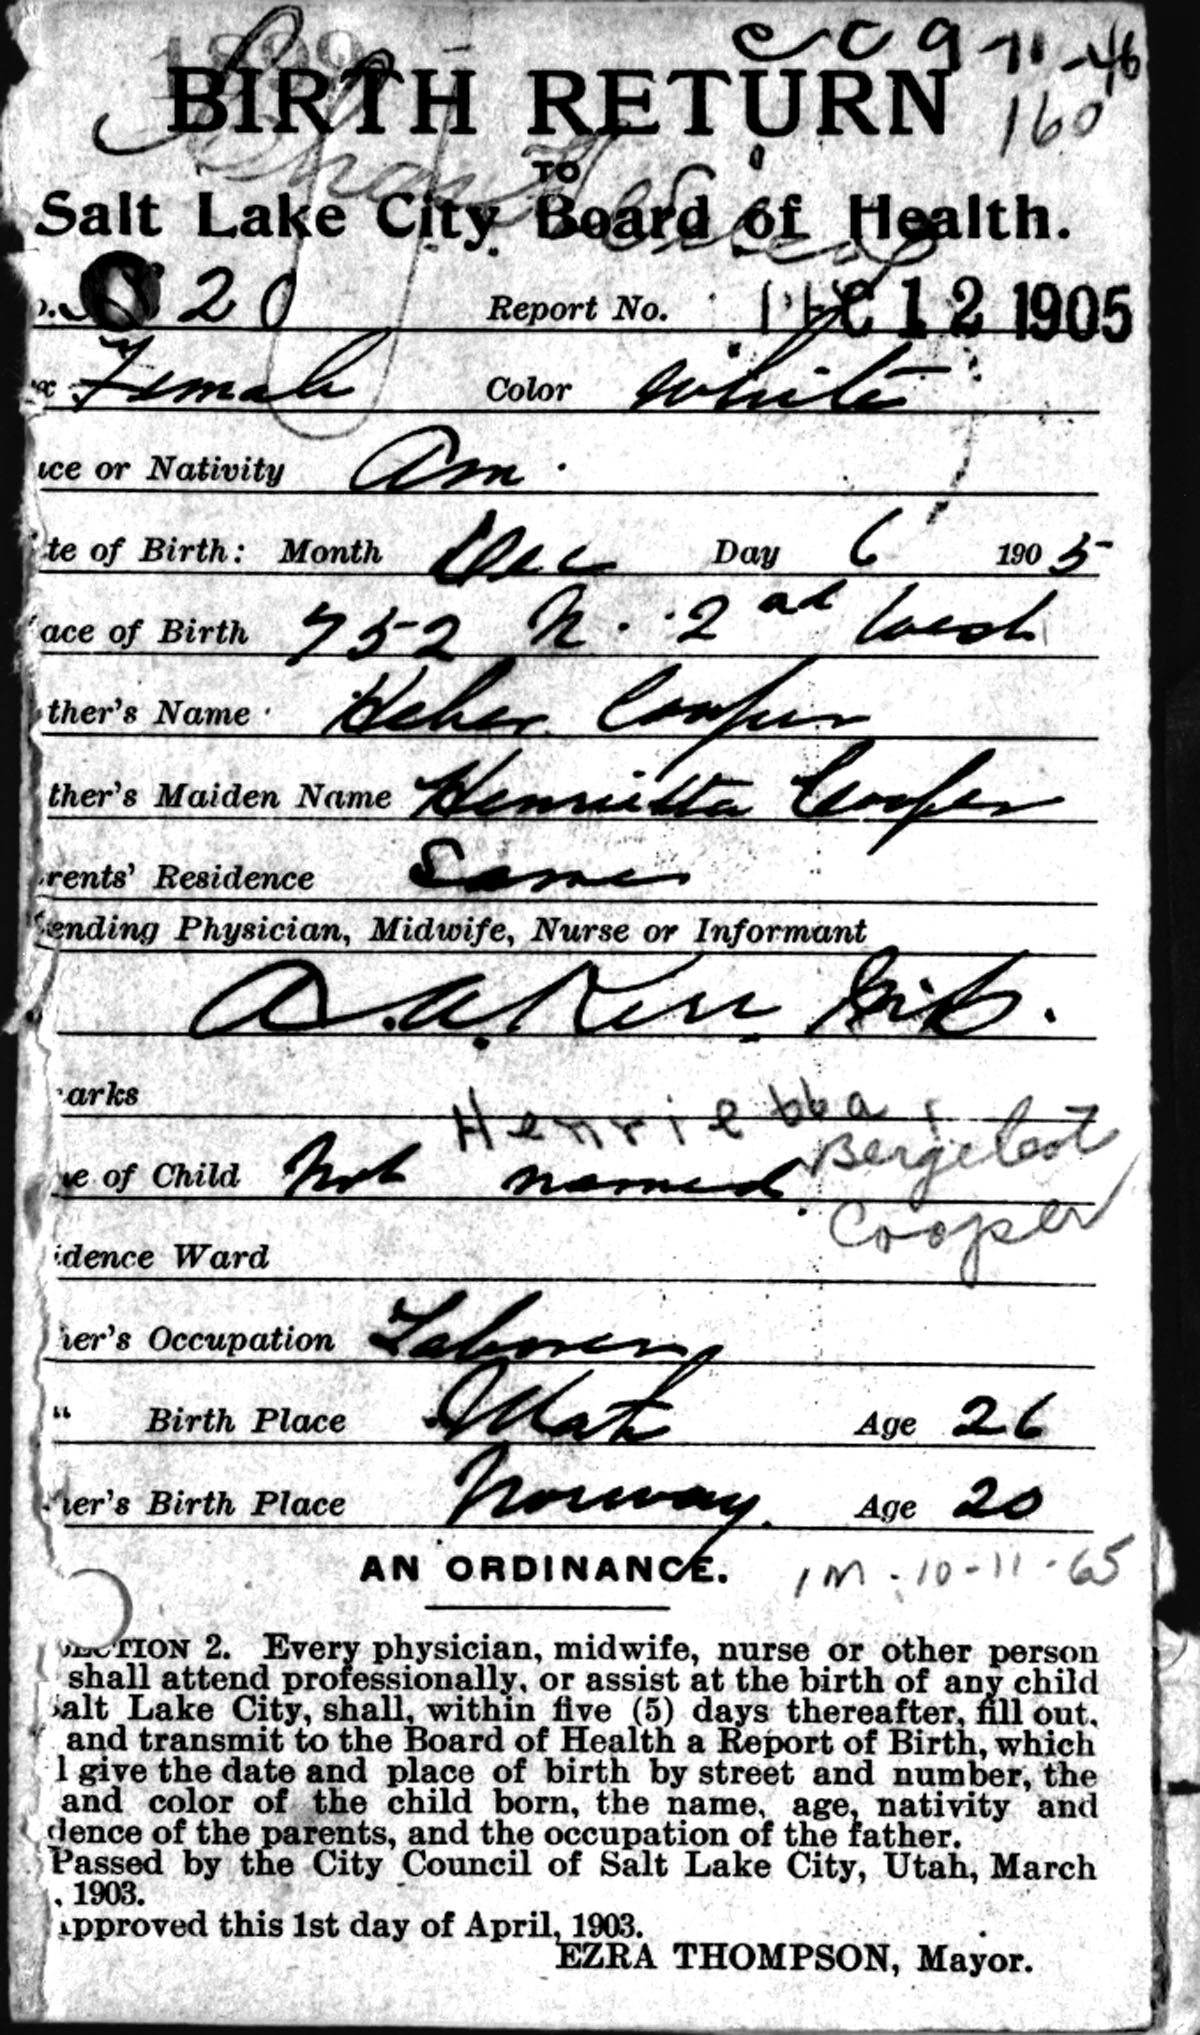 1899
c c 9-11-46
BIRTH RETURN
160
TO
Salt Lake City Board of Health.
o. 20 Report No. DEC 12 1905
x Female Color White
ace or Nativity Am.
te of Birth: Month Dec Day 6 1905
ace of Birth 752 N. 2nd West
ther's Name Heber Cooper
ther's Maiden Name Henrietta Cooper
rents' Residence Same
ending Physician, Midwife, Nurse or Informant
A. A. Kerr M.D.
arks
Henrietta
Bergeliot
e of Child Not named
Cooper
idence Ward
er's Occupation Laborer
" Birth Place Utah Age 26
er's Birth Place Norway. Age 20
AN ORDINANCE. 1M-10-11-65
SECTION 2. Every physician, midwife, nurse or other person
shall attend professionally, or assist at the birth of any child
alt Lake City, shall, within five (5) days thereafter, fill out,
and transmit to the Board of Health a Report of Birth, which
l give the date and place of birth by street and number, the
and color of the child born, the name, age, nativity and
dence of the parents, and the occupation of the father.
Passed by the City Council of Salt Lake City, Utah, March
, 1903.
pproved this 1st day of April, 1903.
EZRA THOMPSON, Mayor.